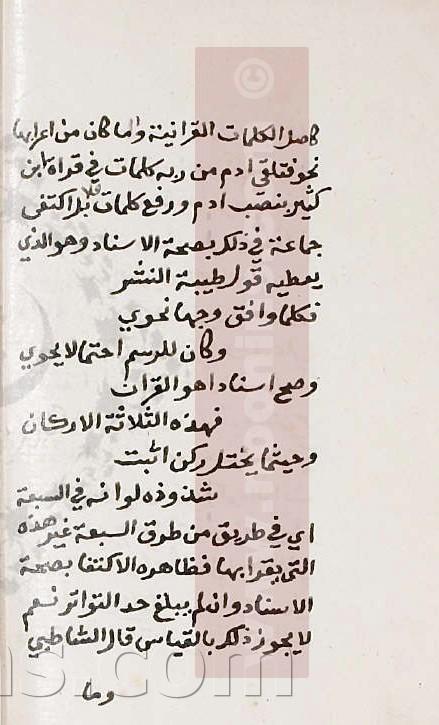 كاصل الكلمات القرانية واما كان من اعرابها
نحو فتلقى ادم من ربه كلمات في قراة ابن
كثير بنصب ادم ورفع كلمات فلا بل اكتفى
جماعة في ذلك بصحة الاسناد وهو الذي
يعطيه قول طيبة النشر
فكلما وافق وجها نحوي
وكان للرسم احتمالا يحوي
وصح اسنادا هو القران
فهذه الثلاثة الاركان
وحيثما يختل ركن اثبت
شذوذه لو انه في السبعة
اي في طريق من طرق السبعة غير هذه
التي يقرا بها فظاهره الاكتفا بصحة
الاسناد وان لم يبلغ حد التواتر نعم
لا يجوز ذلك بالقياس قال الشاطبي
وما
ns.com